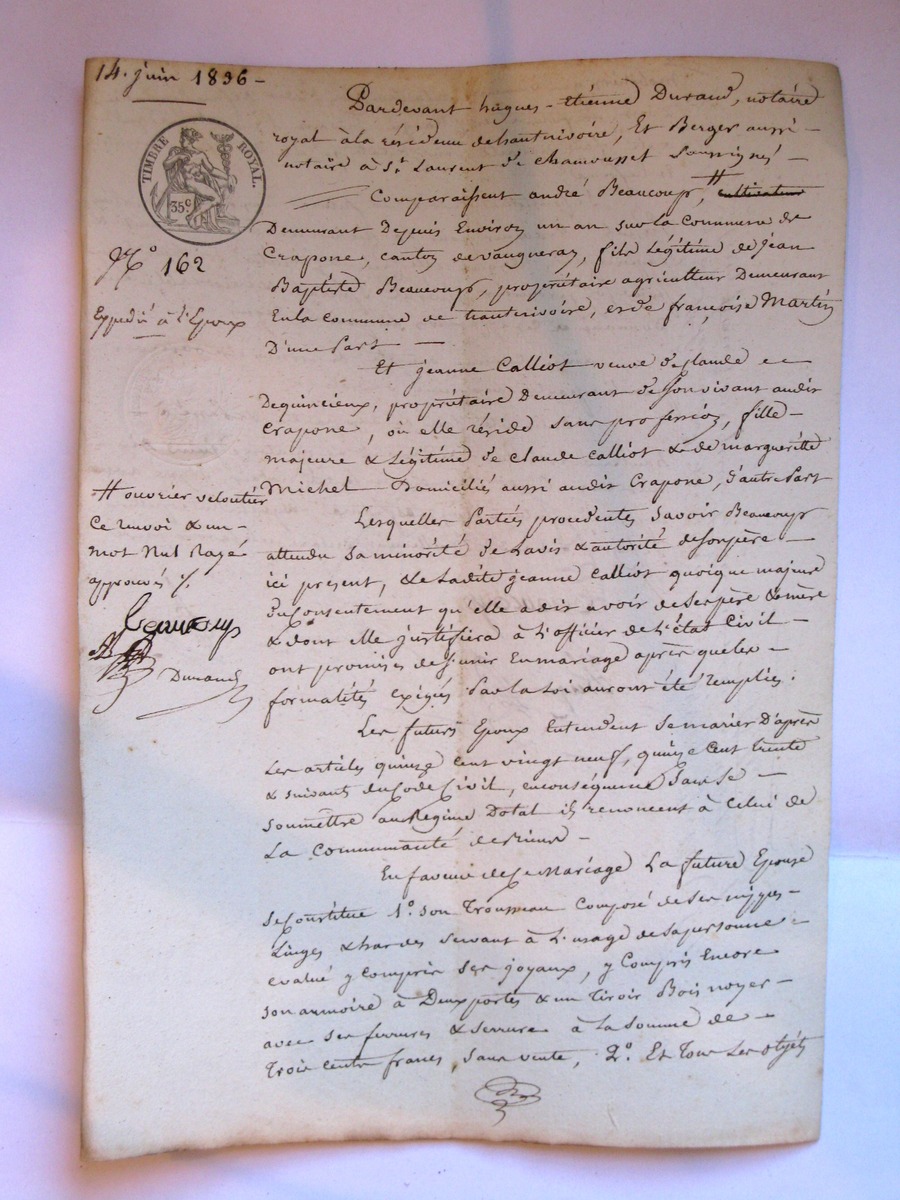 14. juin 1836 -
Pardevant hugues - étienne Durand, notaire
royal à la résidence de hauterivoire, Et Berger aussi -
notaire à St. Laurent de Chamousset Soussignés -
TIMBRE ROYAL.
35c
Comparaissent andré Beaucoup, # cultivateur
Demeurant Depuis Environ un an sur la Commune de
Crapone, canton de vaugneray, fils légitime de jean
Baptiste Beaucoup, propriétaire agriculteur Demeurant
En la commune de hauterivoire, et de françoise Martin
D'une Part -
No 162
Expedié à l'Epoux
Et jeanne Calliot veuve de claude
Dequincieux, propriétaire Demeurant de son vivant audit
Crapone, où elle réside sans profession, fille -
majeure & légitime de Claude Calliot & de margueritte
Michel Domiciliés aussi audit Crapone, D'autre Part
Lesquelles Parties procedentes savoir Beaucoup
attendu sa minorité de l'avis & autorité de son père -
ici present, & la ditte jeanne Calliot quoique majeure
Du Consentement qu'elle a dit avoir de ses père & mère
& dont elle justifiera à l'officier de l'état Civil -
ont promis de s'unir En mariage après que les -
formalités exigées Par la Loi auront été remplies.
# ouvrier veloutier
Ce renvoi & un -
mot Nul Rayé
approuvés /.
Beaucoup
Durand
Les futurs Epoux Entendent se marier D'après
Les articles quinze cent vingt neuf, quinze Cent trente
& suivants du Code Civil, en conséquence sans se -
soumettre au Regime Dotal ils renoncent à Celui de
La Communauté de Biens -
En faveur de ce Mariage La future Epouse
se Constitue 1o. son Trousseau Composé de ses nippes -
Linges & hardes servant à l'usage de sa personne -
evalué y compris ses joyaux, y Compris Encore
son armoire à Deux portes & un tiroir Bois noyer -
avec ses ferrures & serrure à la somme de -
Trois cents francs sans vente, 2o. Et Tous Les objets